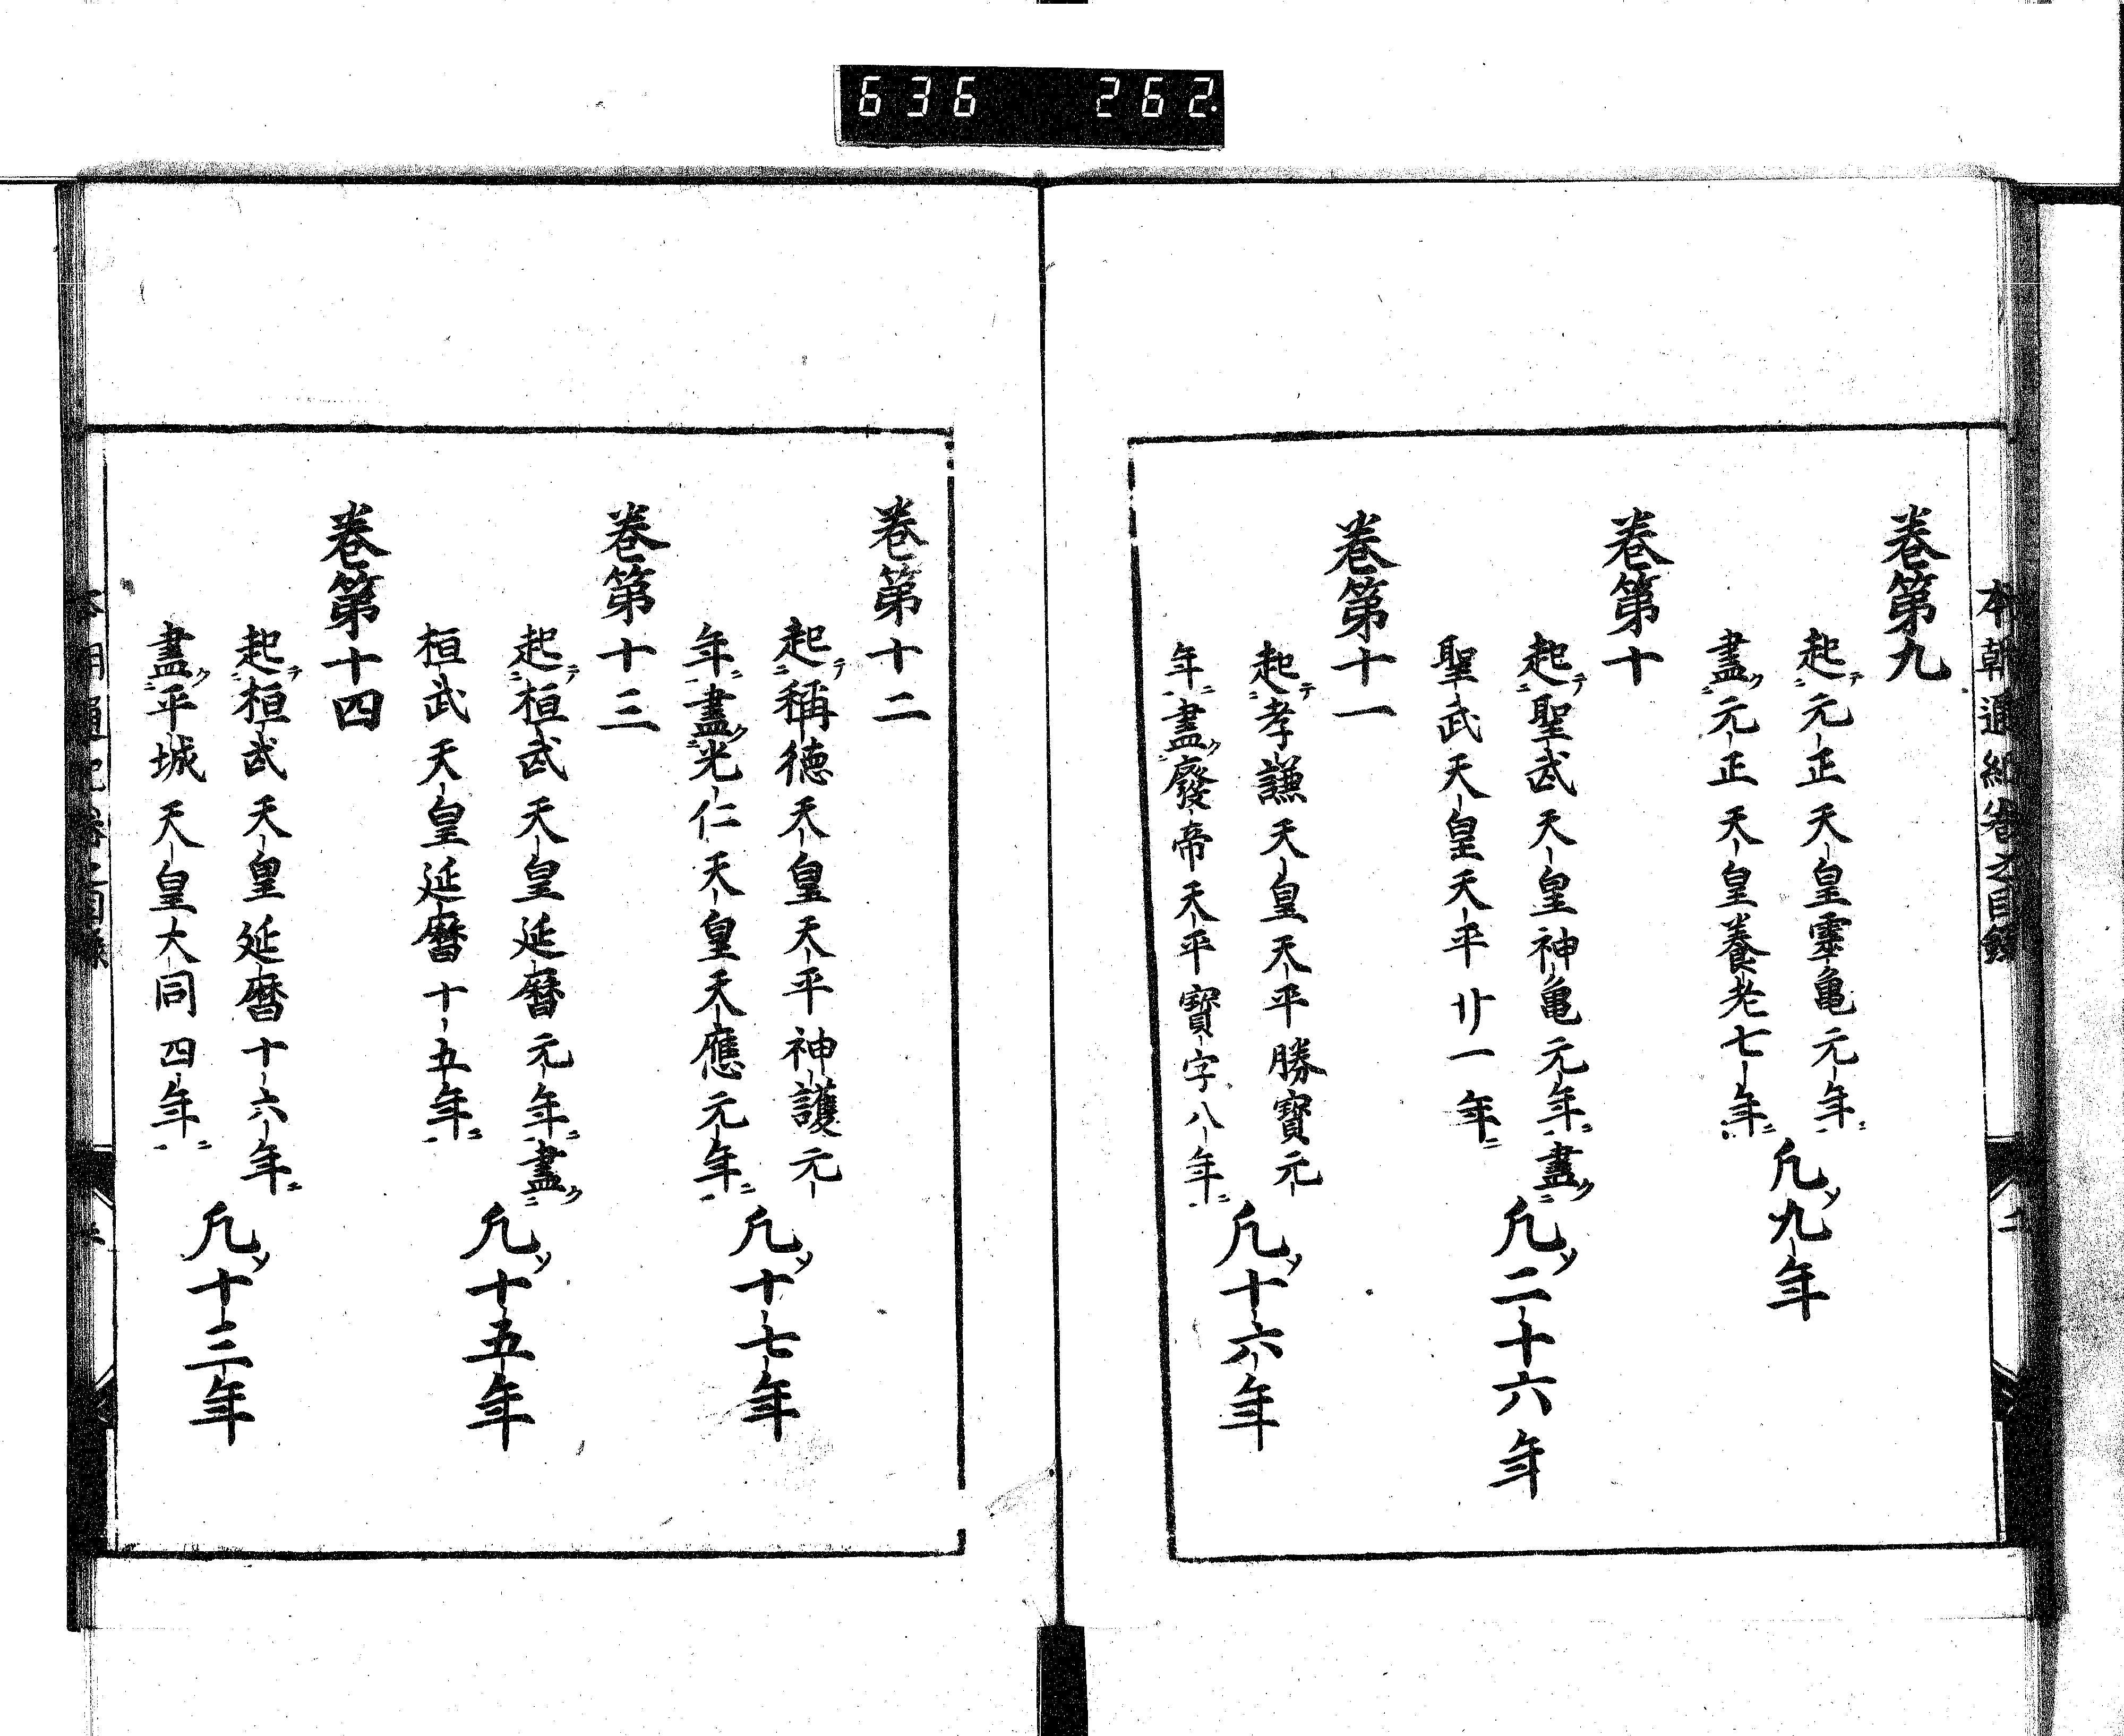 636 262
本朝通紀卷之目錄
二
卷第九
起元正天皇靈亀元年
盡元正天皇養老七年
凢九年
卷第十
起聖武天皇神亀元年盡
聖武天皇天平廿一年
凢二十六年
卷第十一
起孝謙天皇天平勝寳元
年盡廢帝天平寳字八年
凢十六年
卷第十二
起稱徳天皇天平神護元
年盡光仁天皇天應元年
凢十七年
卷第十三
起桓武天皇延暦元年盡
桓武天皇延暦十五年
凢十五年
卷第十四
起桓武天皇延暦十六年
盡平城天皇大同四年
凢十三年